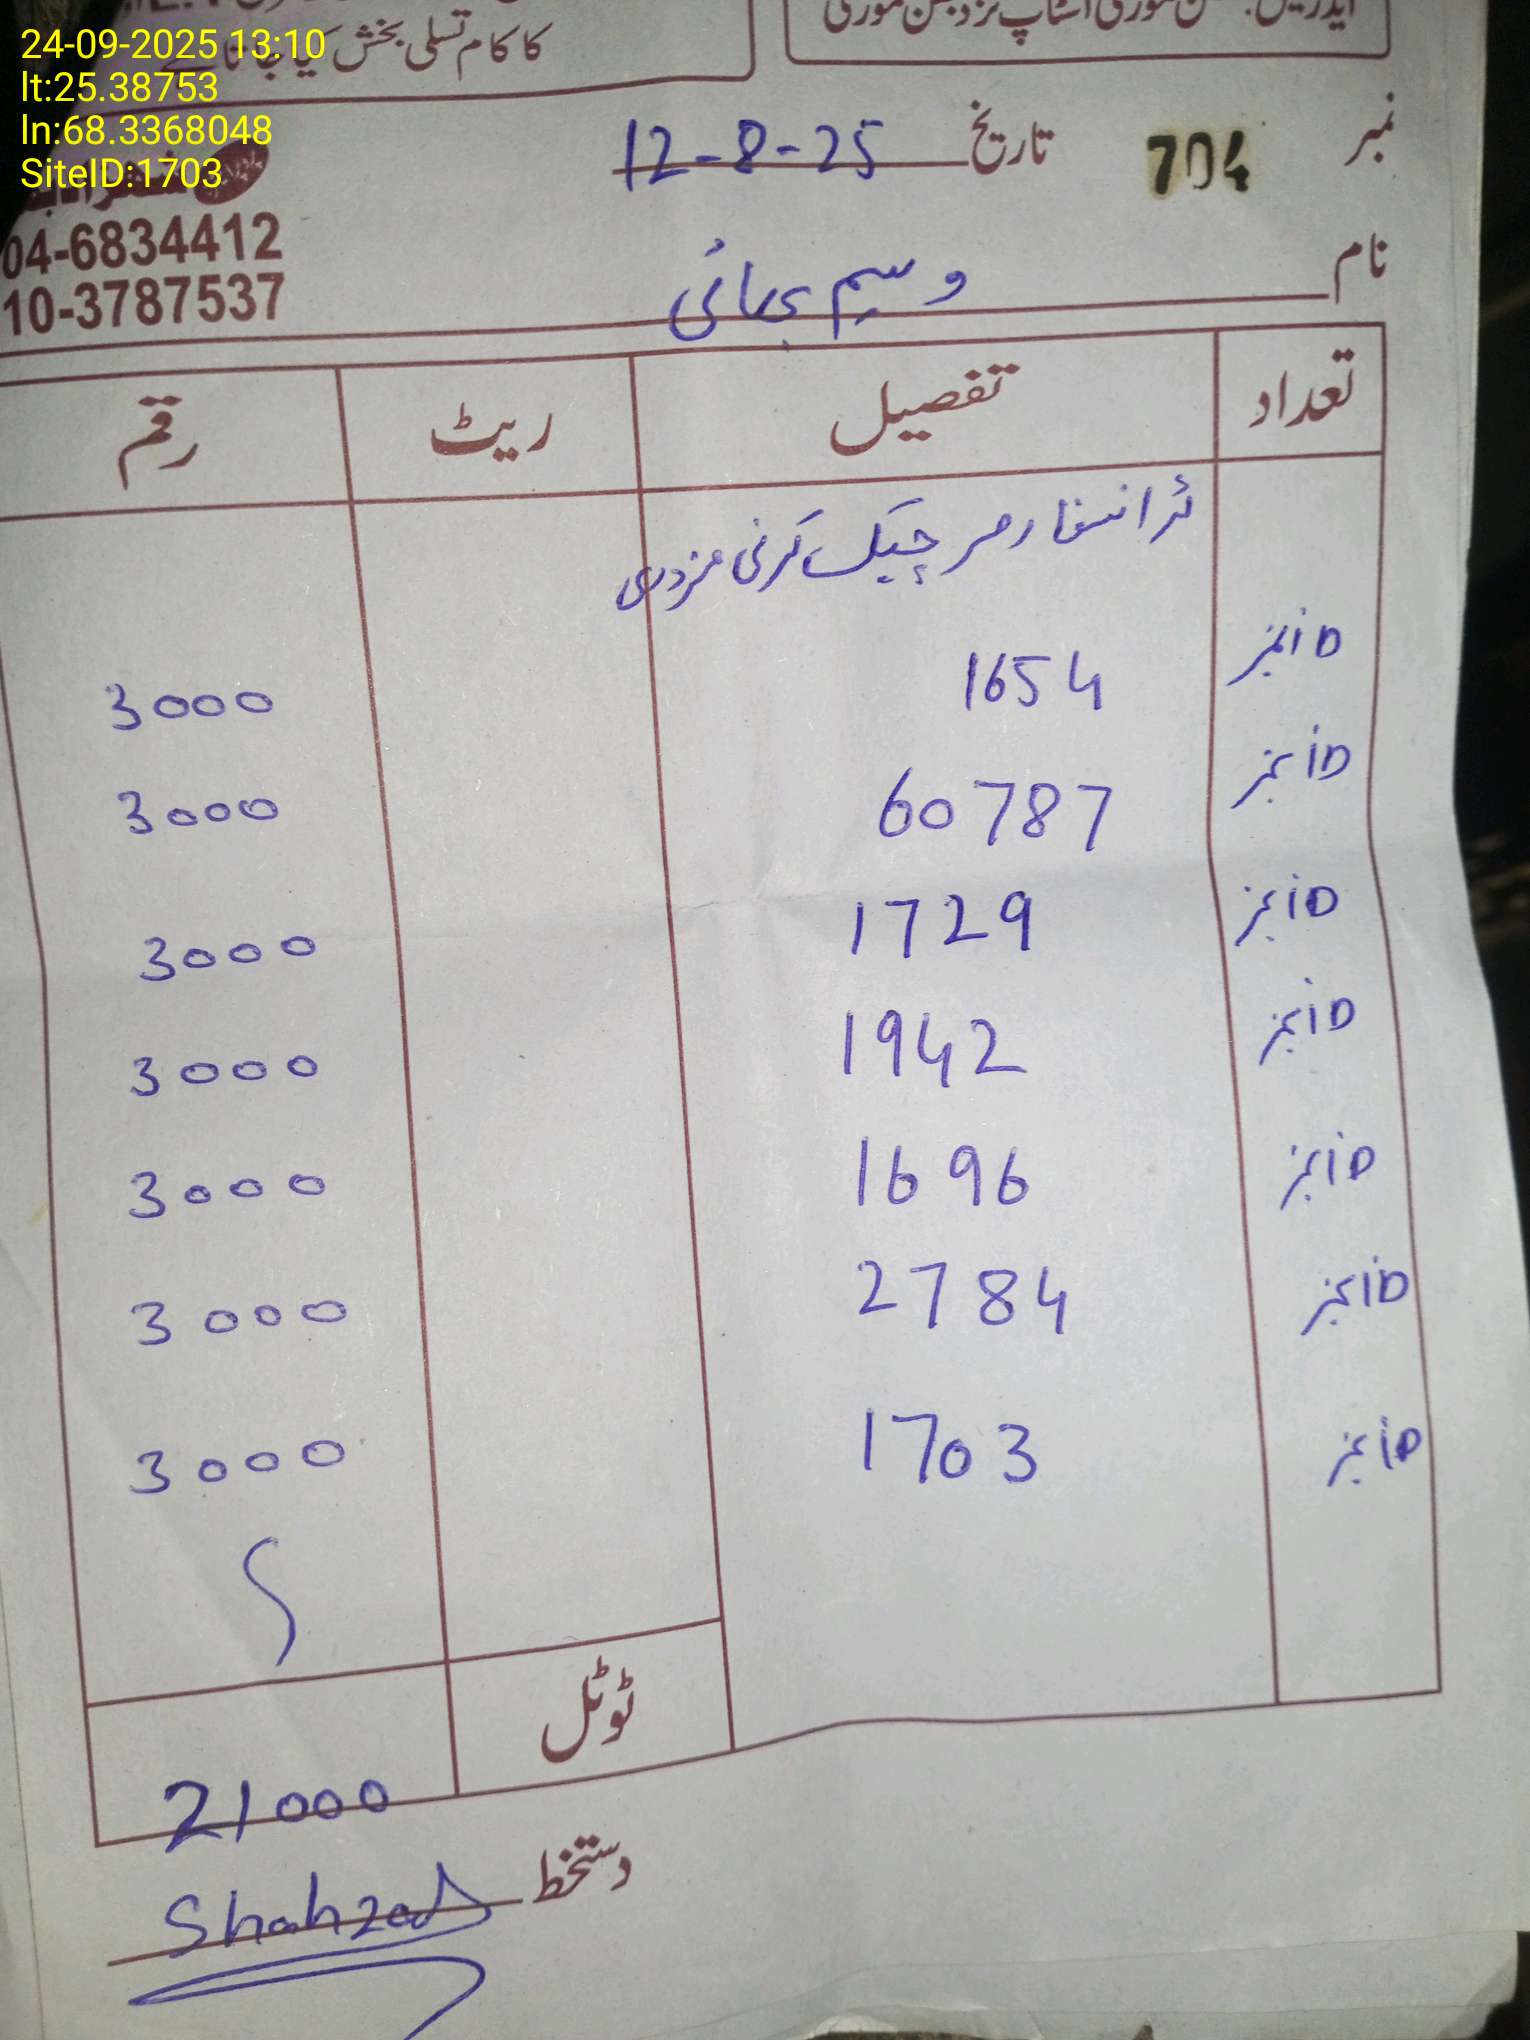 24-09-2025 13:10
lt:25.38753
ln:68.3368048
SiteID:1703
کا کام تسلی بخش کیا جاتا ہے
نمبر 704 تاریخ 12-8-25
04-6834412
10-3787537
نام وسیم بھائی
تعداد تفصیل ریٹ رقم
ٹرانسفارمر چیک کرنی مزدوری
iD نمبر 1654 3000
iD نمبر 60787 3000
iD نمبر 1729 3000
iD نمبر 1942 3000
iD نمبر 1696 3000
iD نمبر 2784 3000
iD نمبر 1703 3000
ٹوٹل 21000
دستخط Shahzad